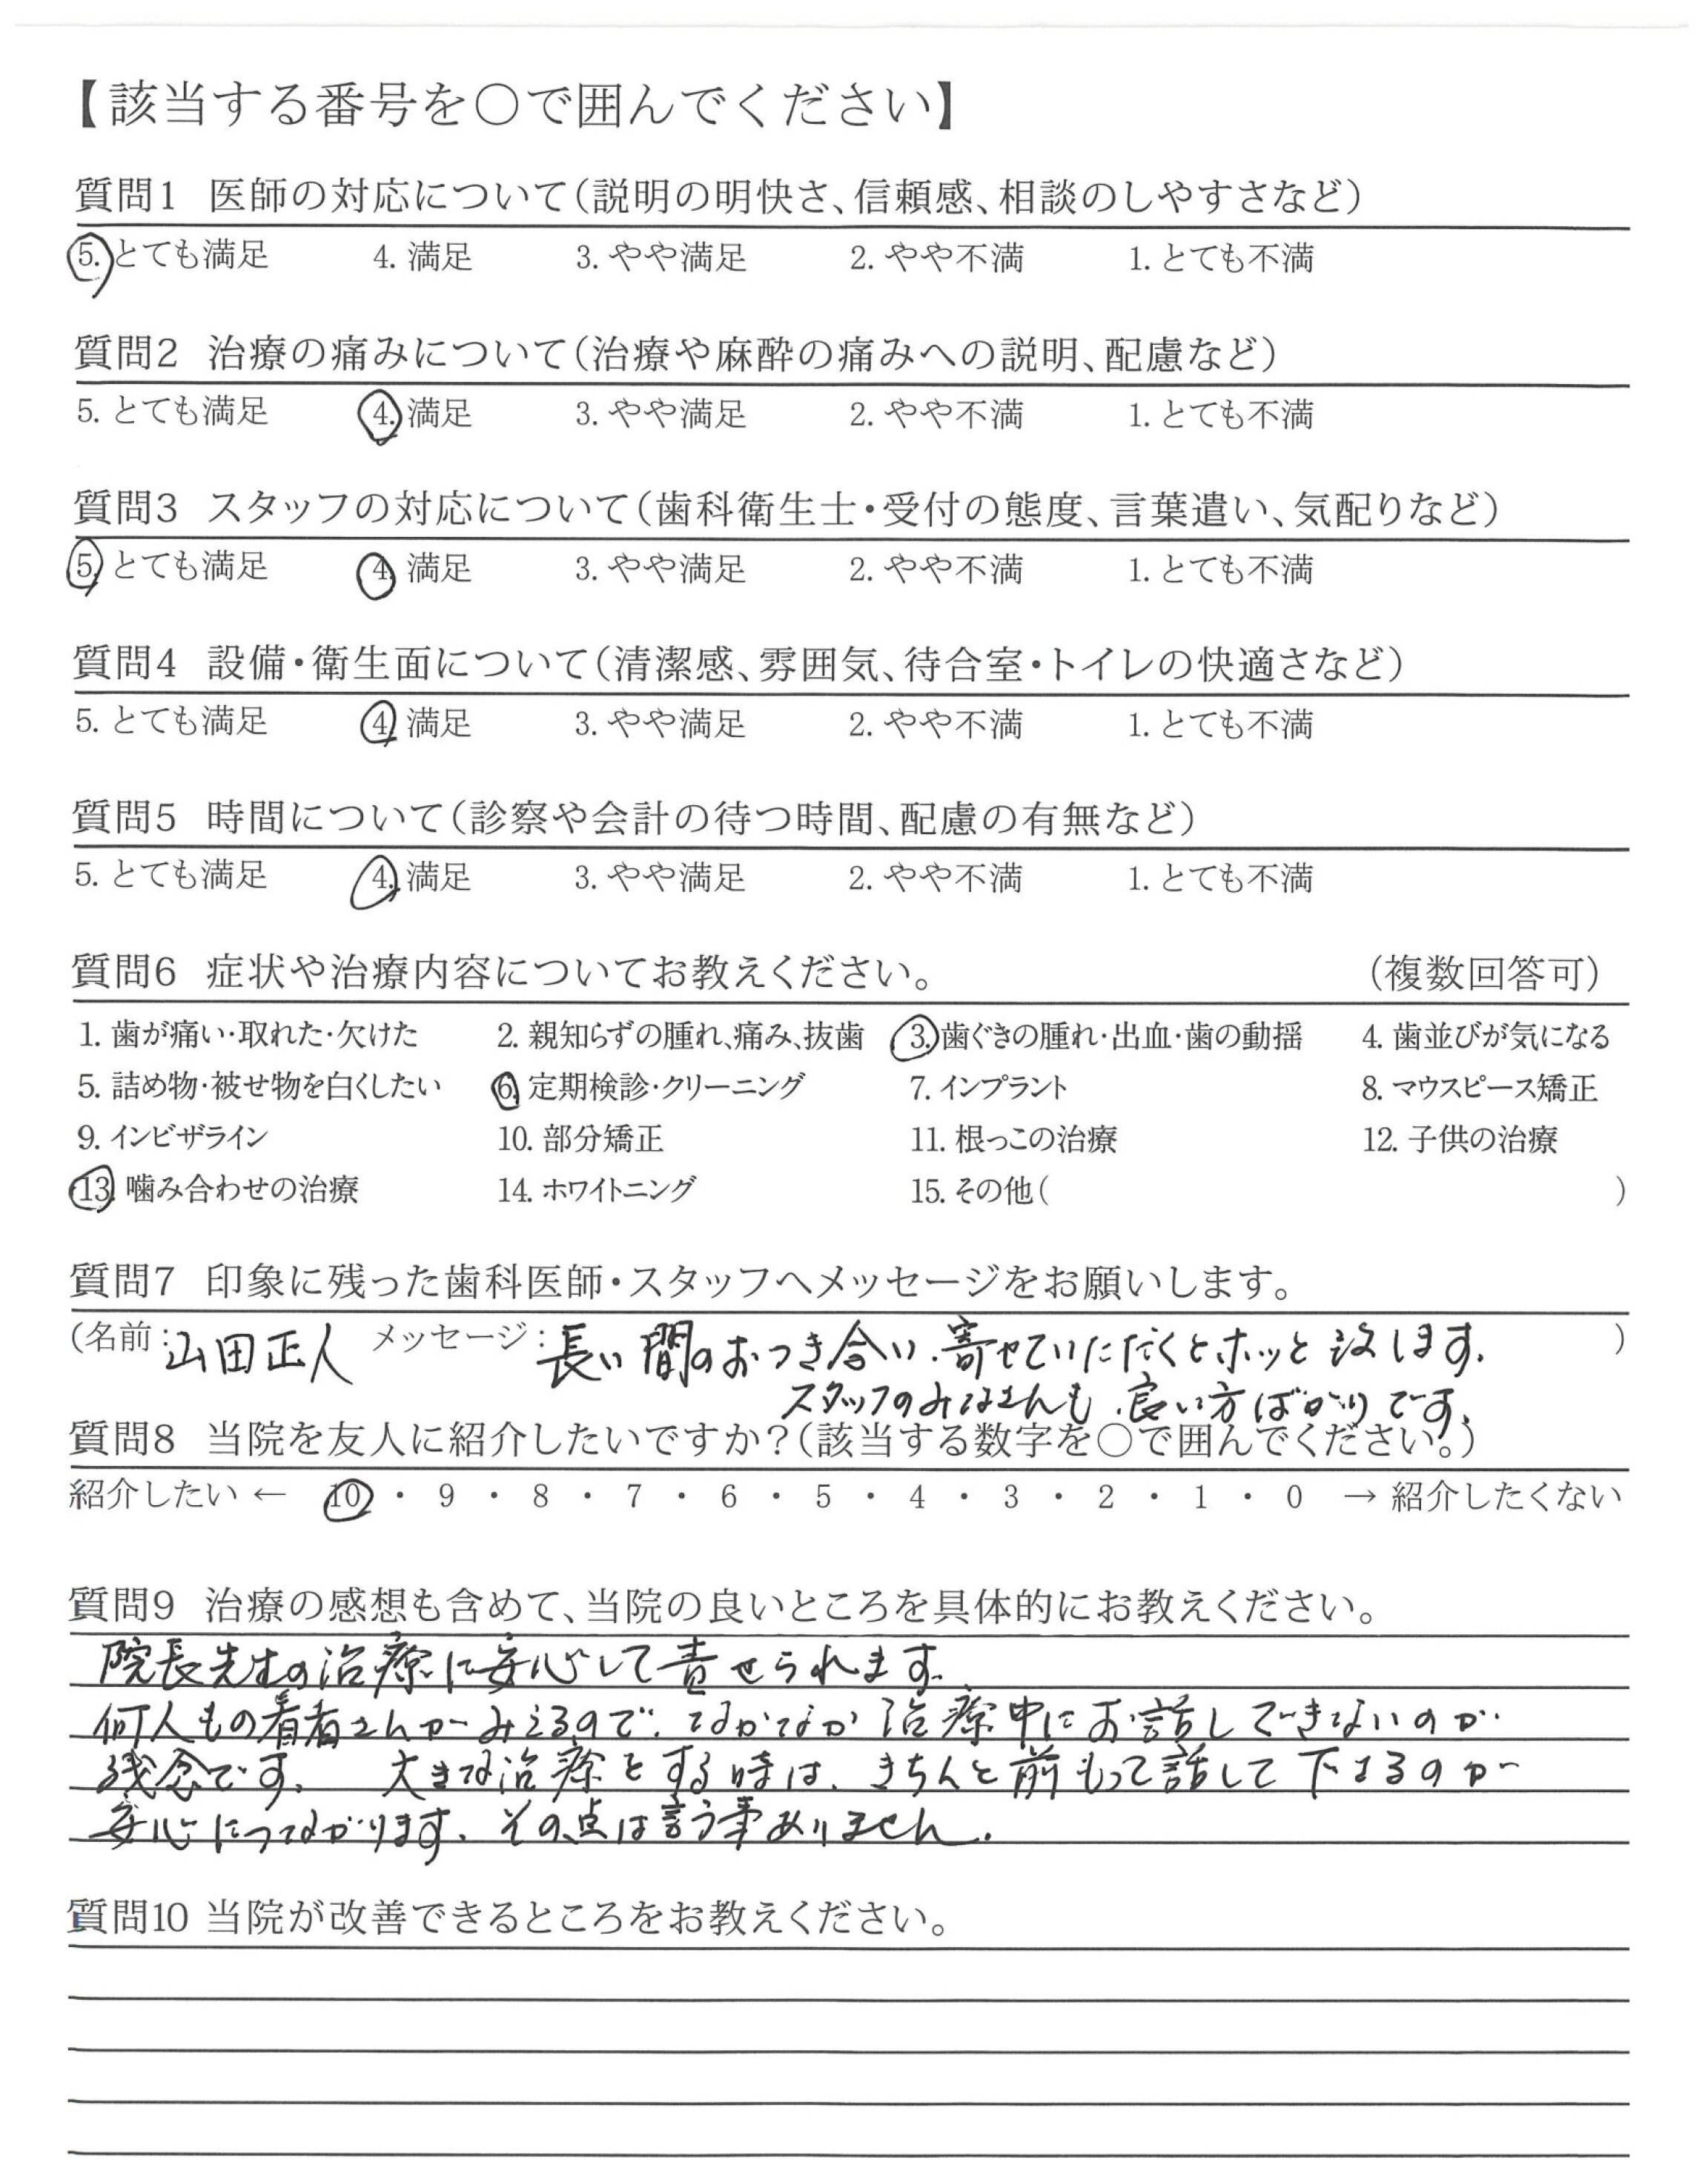 【該当する番号を○で囲んでください】
質問1 医師の対応について(説明の明快さ、信頼感、相談のしやすさなど)
5. とても満足 4. 満足 3. やや満足 2. やや不満 1. とても不満
質問2 治療の痛みについて(治療や麻酔の痛みへの説明、配慮など)
5. とても満足 4. 満足 3. やや満足 2. やや不満 1. とても不満
質問3 スタッフの対応について(歯科衛生士・受付の態度、言葉遣い、気配りなど)
5. とても満足 4. 満足 3. やや満足 2. やや不満 1. とても不満
質問4 設備・衛生面について(清潔感、雰囲気、待合室・トイレの快適さなど)
5. とても満足 4. 満足 3. やや満足 2. やや不満 1. とても不満
質問5 時間について(診察や会計の待つ時間、配慮の有無など)
5. とても満足 4. 満足 3. やや満足 2. やや不満 1. とても不満
質問6 症状や治療内容についてお教えください。 (複数回答可)
1. 歯が痛い・取れた・欠けた 2. 親知らずの腫れ、痛み、抜歯 3. 歯ぐきの腫れ・出血・歯の動揺 4. 歯並びが気になる
5. 詰め物・被せ物を白くしたい 6. 定期検診・クリーニング 7. インプラント 8. マウスピース矯正
9. インビザライン 10. 部分矯正 11. 根っこの治療 12. 子供の治療
13. 噛み合わせの治療 14. ホワイトニング 15. その他( )
質問7 印象に残った歯科医師・スタッフへメッセージをお願いします。
(名前:山田正人 メッセージ:長い間のおつき合い、寄せていただくとホッと致します。 )
スタッフのみなさんも、良い方ばかりです。
質問8 当院を友人に紹介したいですか?(該当する数字を○で囲んでください。)
紹介したい ← 10 ・ 9 ・ 8 ・ 7 ・ 6 ・ 5 ・ 4 ・ 3 ・ 2 ・ 1 ・ 0 → 紹介したくない
質問9 治療の感想も含めて、当院の良いところを具体的にお教えください。
院長先生の治療に安心して せられます。
何人もの患者さんがみえるので、なかなか治療中にお話しできないのが
残念です。 大きな治療をする時は、きちんと前もって話して下さるのが
安心につながります。その点は言う事ありません。
質問10 当院が改善できるところをお教えください。